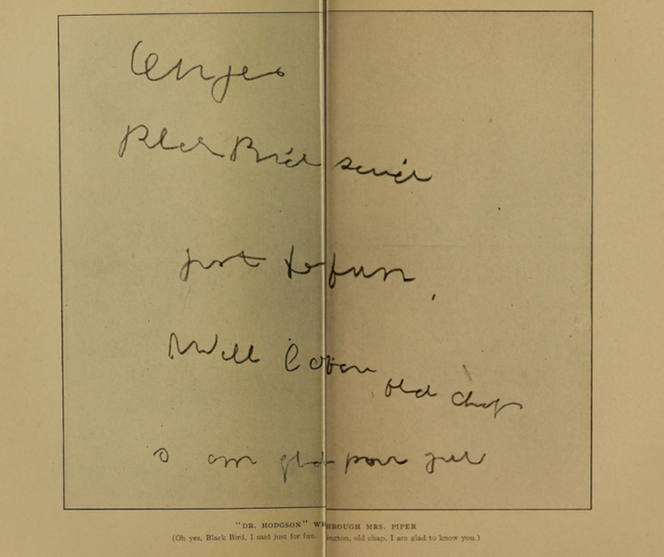 Oh yes
Black Bird I said
just for fun,
Well
old chap
I am glad
"DR. HODGSON" MRS. PIPER
(Oh yes, Black Bird, I said just for fun. old chap, I am glad to know you.)